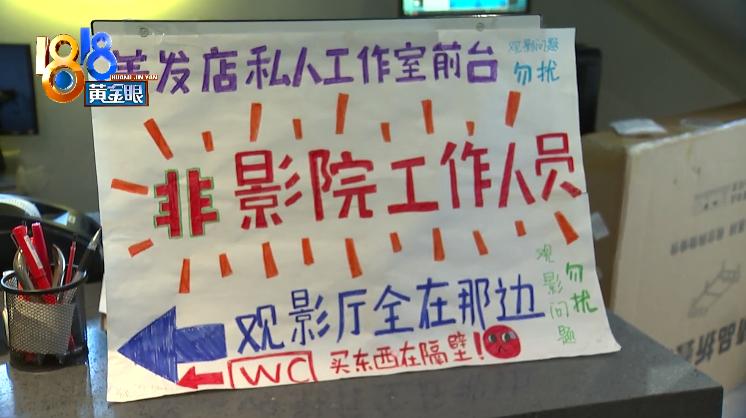 1818
HUANG JIN YAN
黄金眼
美发店私人工作室前台
观影问题
勿扰
非影院工作人员
观影问题
勿扰
观影厅全在那边
WC 买东西在隔壁!